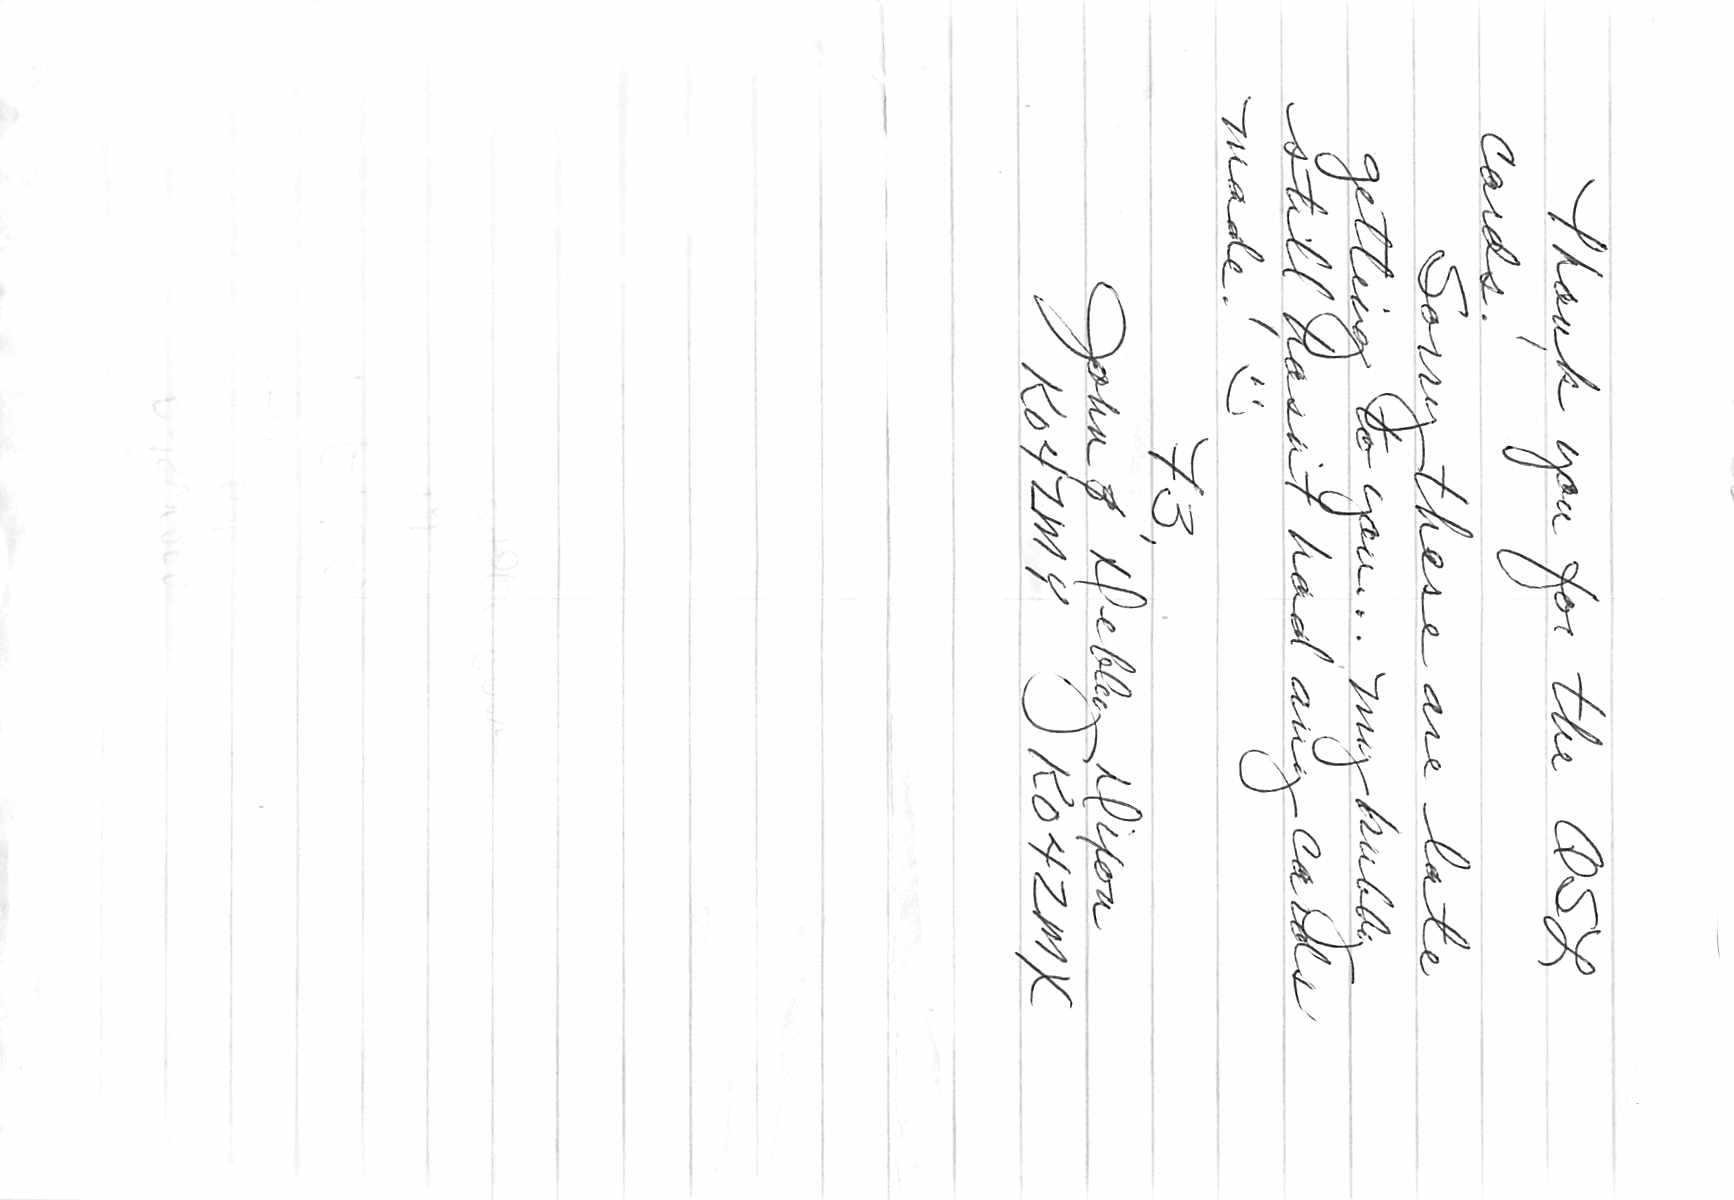 Thank you for the QSL
cards!
Sorry these are late
getting to you... my hubby
still hasn't had any cards
made! :)
73,
John & Debby Dixon
KO4ZMY KO4ZMX